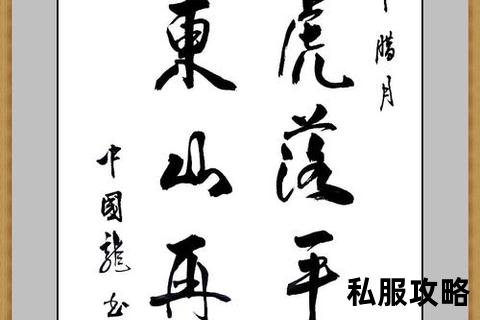 腊月
虎落平
東山再
中國龍书
私服攻略